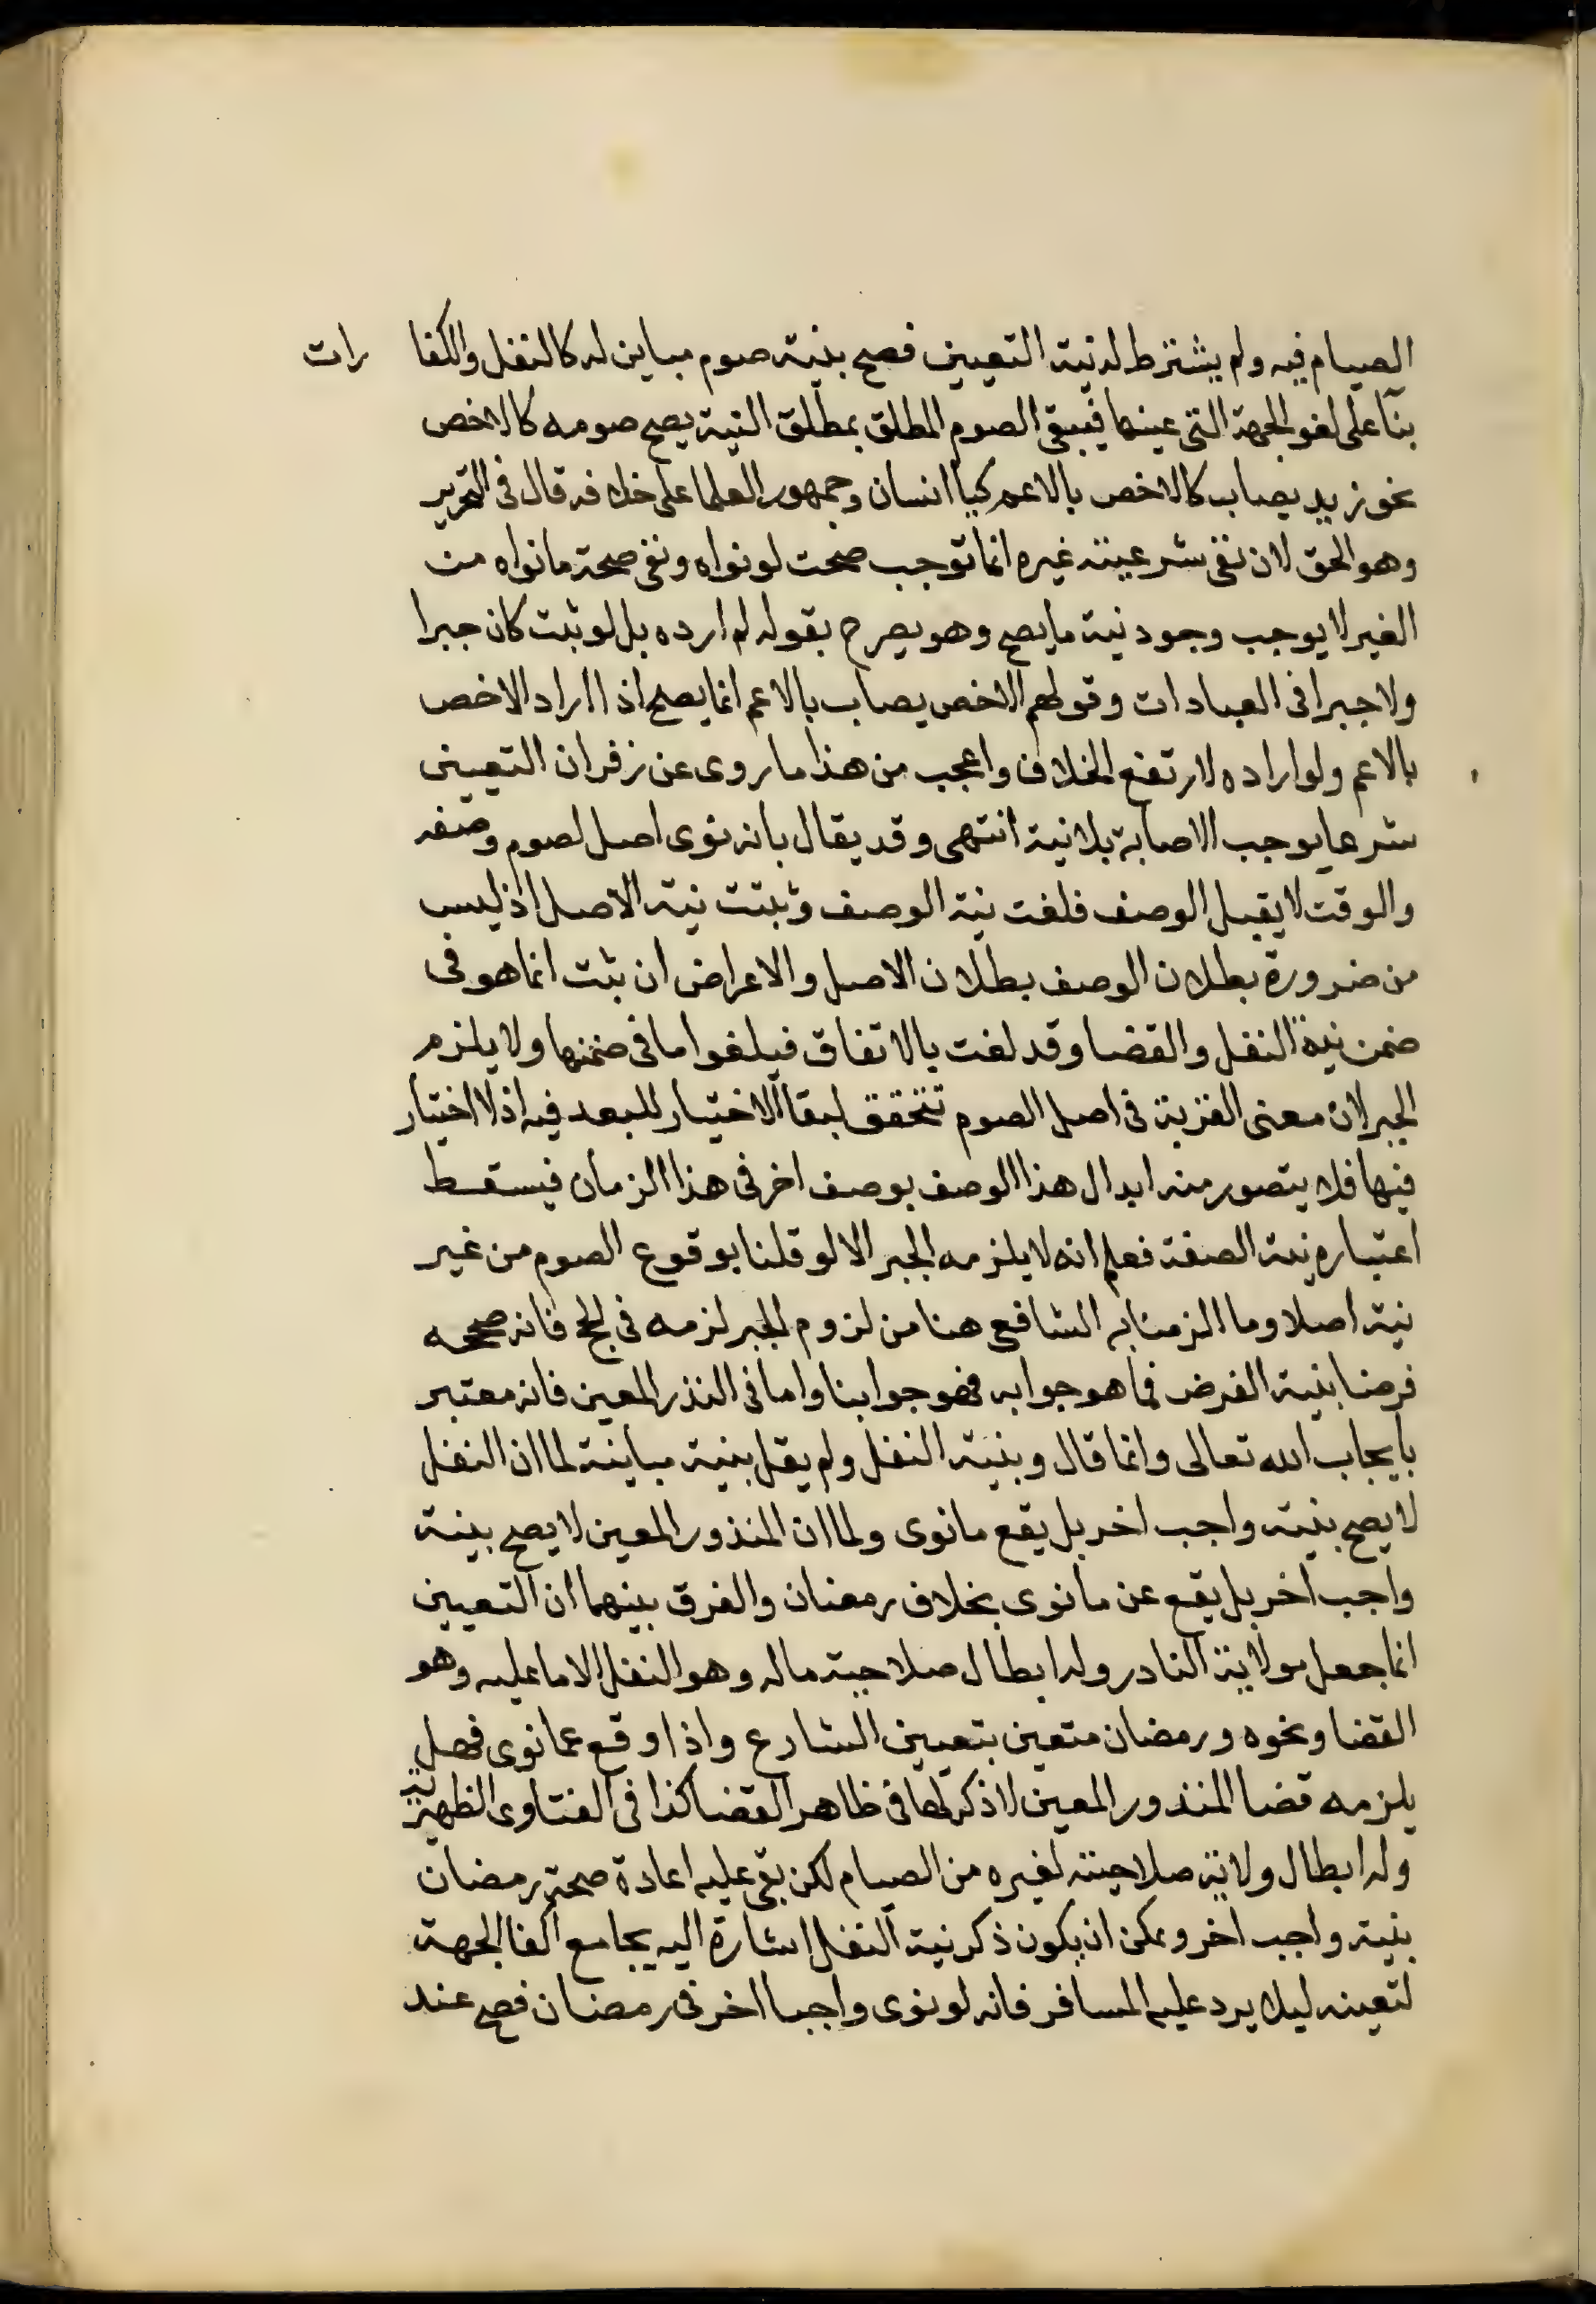 الصيام فيه ولم يشترط له نية التعيين فصح بنية صوم مباين له كالنفل والكفا رات
بنآ على لغو الجهة التى عينها فيبقى الصوم المطلق بمطلق النية يصح صومه كالاخص
نحو زيد يصاب كالاخص بالاعم كيا انسان وجمهور العلما على خلافه قال فى التحرير
وهو الحق لان نفى شرعيته غيره انما توجب صحت لو نواه ونفى صحة ما نواه من
الغير لا يوجب وجود نية ما يصح وهو يصرح بقوله لم ارده بل لو ثبت كان جبرا
ولا جبرا فى العبادات وقولهم الاخص يصاب بالاعم انما يصح اذا اراد الاخص
بالاعم ولو اراده لارتفع الخلاف واعجب من هذا ما روى عن زفر ان التعيين
شرعا يوجب الاصابة بلا نية انتهى وقد يقال بانه نوى اصل لصوم وصفه
والوقت لا يقبل الوصف فلغت نية الوصف وثبتت نية الاصل اذ ليس
من ضرورة بطلان الوصف بطلان الاصل والاعراض ان ثبت انما هو فى
ضمن نية النفل والقضا وقد لغت بالاتفاق فيلغوا ما فى ضمنها ولا يلزم
الجبر لان معنى القربة فى اصل الصوم تتحقق لبقآ الاختيار للبعد فيه اذ لا اختيار
فيها فلا يتصور منه ابدال هذا الوصف بوصف اخر فى هذا الزمان فيسقط
اعتباره نية الصفة فعلم انه لا يلزمه الجبر الا لو قلنا بوقوع الصوم من غير
نية اصلا وما الزمنا به الشافعى هنا من لزوم الجبر لزمه فى الحج فانه صححه
فرضا بنية الفرض فما هو جوابه فهو جوابنا واما فى النذر المعين فانه معتبر
بايجاب الله تعالى وانما قال وبنية النفل ولم يقل بنية مباينة لما ان النفل
لا يصح بنية واجب اخر بل يقع ما نوى ولما ان المنذور المعين لا يصح بنية
واجب اخر بل يقع عن ما نوى بخلاف رمضان والفرق بينهما ان التعيين
انما جعل بولاية الناذر وله ابطال صلاحية ماله وهو النفل لا ما عليه وهو
القضا ونحوه ورمضان متعين بتعيين الشارع واذا وقع عما نوى فهل
يلزمه قضا المنذور المعين لا ذكر لها فى ظاهر القضا كذا فى الفتاوى الظهيرية
وله ابطال ولاية صلاحيته لغيره من الصيام لكن بقى عليه اعادة صحة رمضان
بنية واجب اخر ويمكن ان يكون ذكر نية النفل اشارة اليه بجامع الغا الجهة
لتعينه ليلا يرد عليه المسافر فانه لو نوى واجبا اخر فى رمضان فصح عند